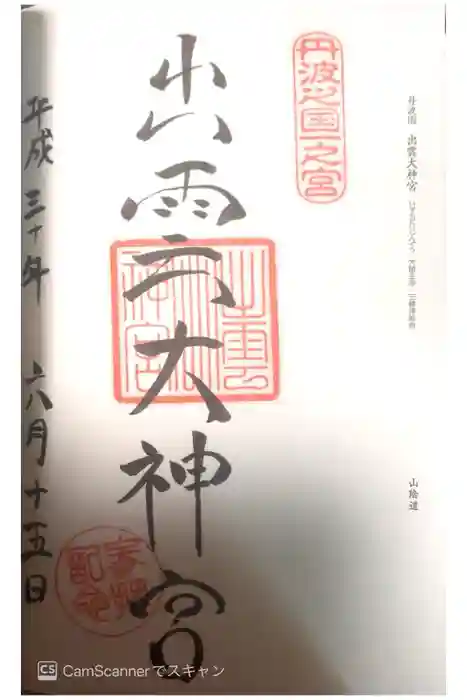 丹波国 出雲大神宮 いずもだいじんぐう
山陰道
丹波之国一之宮
出雲大神宮
出雲大神宮
平成三十年 六月十五日
CS CamScannerでスキャン